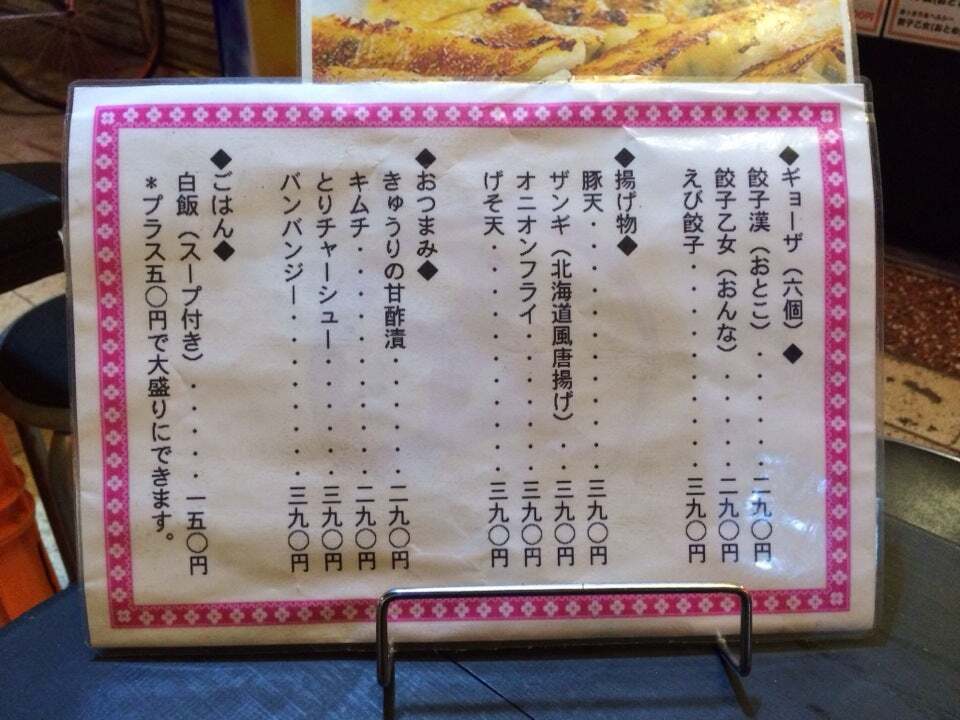 ◆ギョーザ（六個）◆
餃子漢（おとこ）・・・・・・二九〇円
餃子乙女（おんな）・・・・・二九〇円
えび餃子・・・・・・・・・・三九〇円
◆揚げ物◆
豚天・・・・・・・・・・・・三九〇円
ザンギ（北海道風唐揚げ）・・三九〇円
オニオンフライ・・・・・・・三九〇円
げそ天・・・・・・・・・・・三九〇円
◆おつまみ◆
きゅうりの甘酢漬・・・・・・二九〇円
キムチ・・・・・・・・・・・二九〇円
とりチャーシュー・・・・・・三九〇円
バンバンジー・・・・・・・・三九〇円
◆ごはん◆
白飯（スープ付き）・・・・・一五〇円
＊プラス五〇円で大盛りにできます。